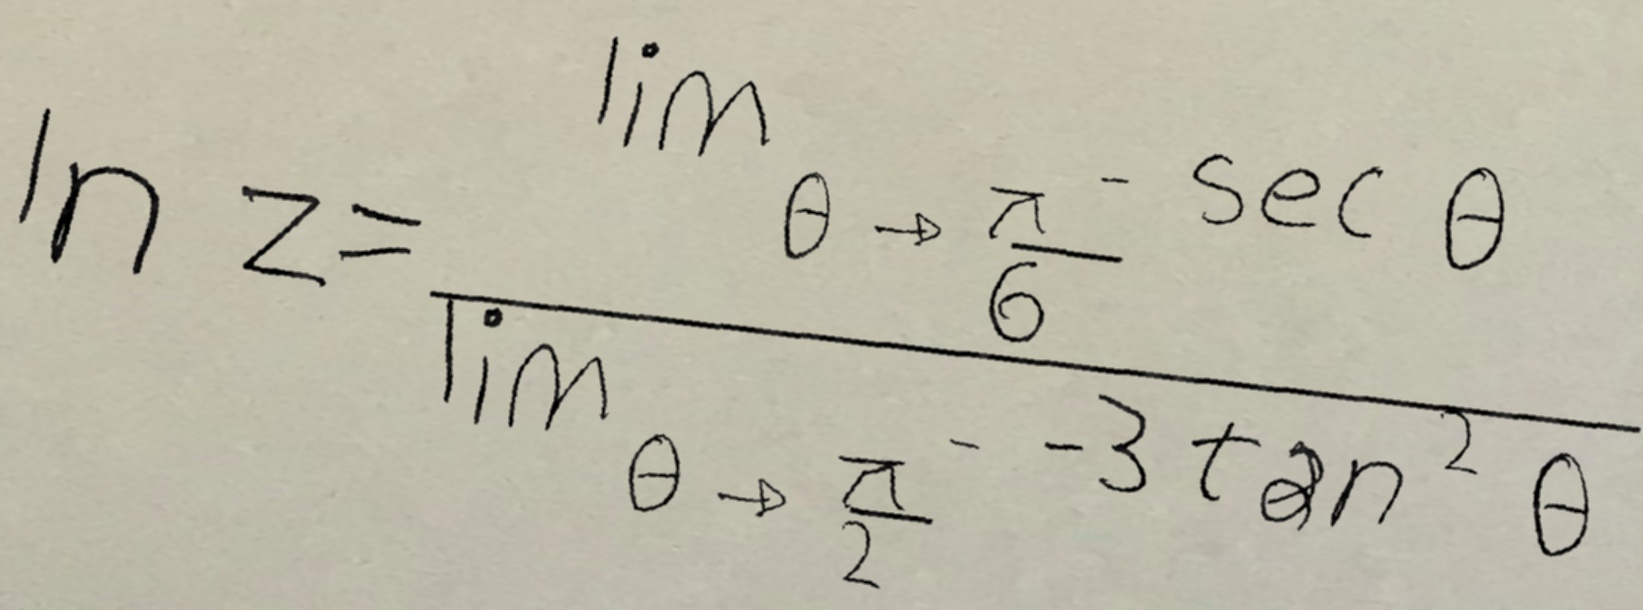 ln z = \frac{\lim_{\theta \to \frac{\pi}{6}^-} \sec \theta}{\lim_{\theta \to \frac{\pi}{2}^-} -3 \tan^2 \theta}